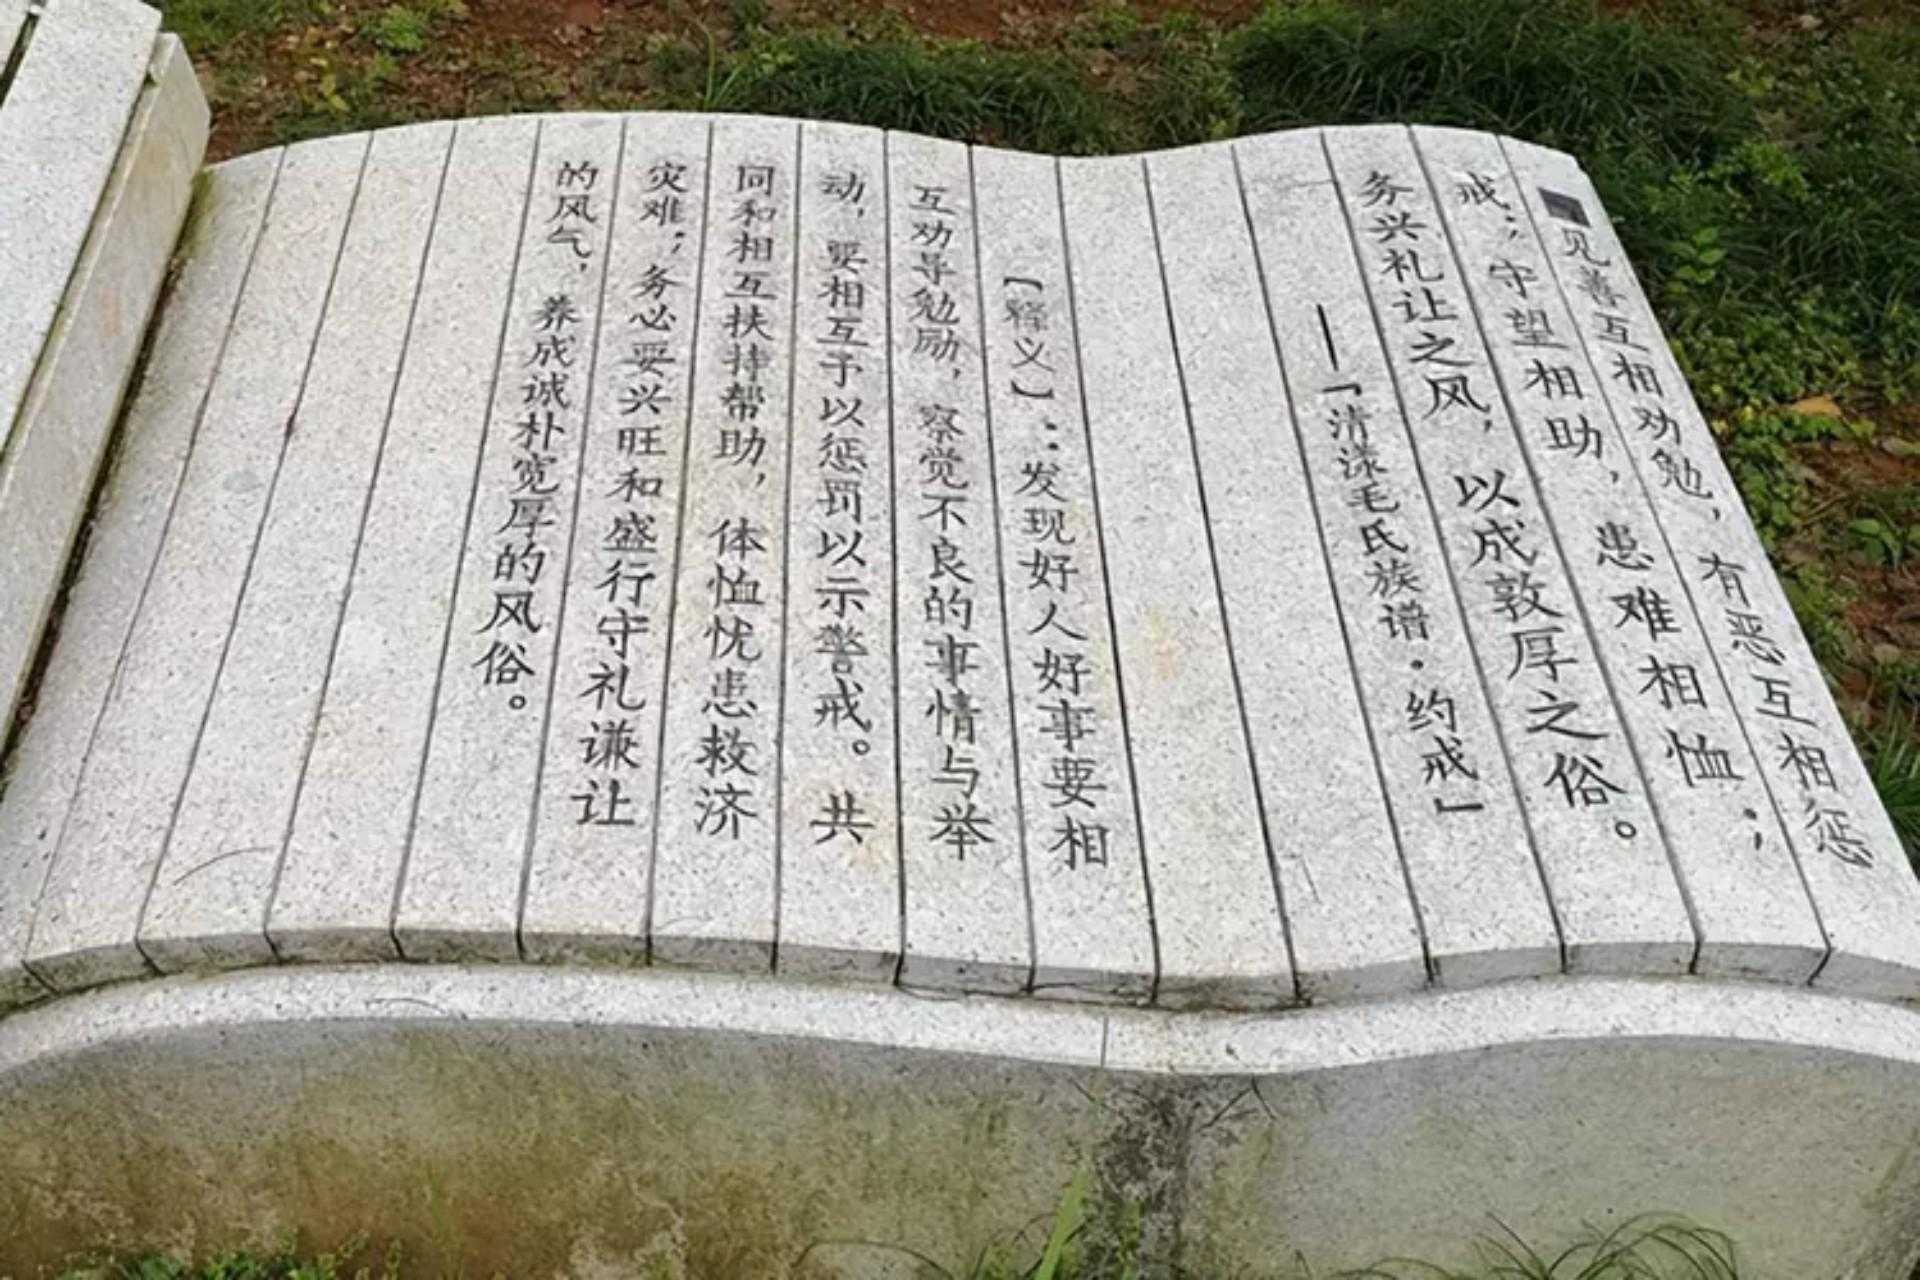 见善互相劝勉，有恶互相惩
戒；守望相助，患难相恤；
务兴礼让之风，以成敦厚之俗。
——「清漾毛氏族谱·约戒」
【释义】：发现好人好事要相
互劝导勉励，察觉不良的事情与举
动，要相互予以惩罚以示警戒。共
同和相互扶持帮助，体恤忧患救济
灾难；务必要兴旺和盛行守礼谦让
的风气，养成诚朴宽厚的风俗。